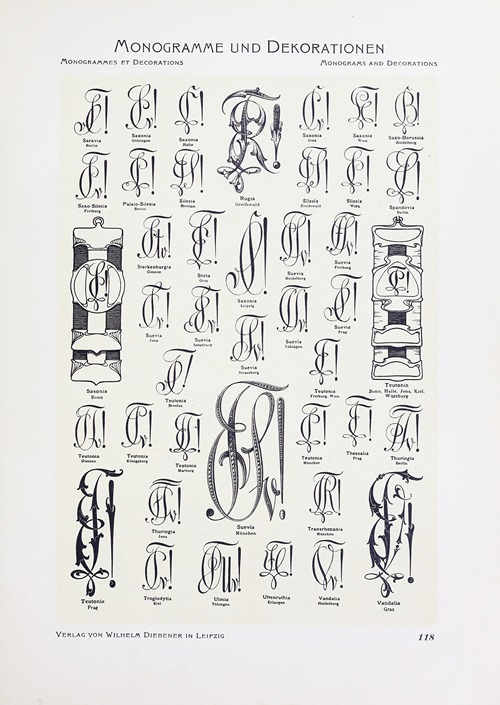 MONOGRAMME UND DEKORATIONEN
MONOGRAMMES ET DECORATIONS
MONOGRAMS AND DECORATIONS
Saravia
Berlin
Saxonia
Göttingen
Saxonia
Halle
Rugia
Greifswald
Saxonia
Jena
Saxonia
Wien
Saxo-Borussia
Heidelberg
Saxo-Silesia
Freiburg
Palaio-Silesia
Berlin
Silesia
Breslau
Silesia
Greifswald
Silesia
Wien
Spandovia
Berlin
Starkenburgia
Giessen
Stiria
Graz
Saxonia
Leipzig
Suevia
Heidelberg
Suevia
Freiburg
Saxonia
Bonn
Suevia
Jena
Suevia
Innsbruck
Suevia
Strassburg
Suevia
Tübingen
Suevia
Prag
Teutonia
Bonn, Halle, Jena, Kiel,
Würzburg
Teutonia
Breslau
Teutonia
Freiburg, Wien
Teutonia
Giessen
Teutonia
Königsberg
Teutonia
Marburg
Suevia
München
Teutonia
München
Thessalia
Prag
Thuringia
Berlin
Teutonia
Prag
Thuringia
Jena
Transrhenania
München
Vandalia
Graz
Troglodytia
Kiel
Ulmia
Tübingen
Uttenruthia
Erlangen
Vandalia
Heidelberg
VERLAG VON WILHELM DIEBENER IN LEIPZIG
118